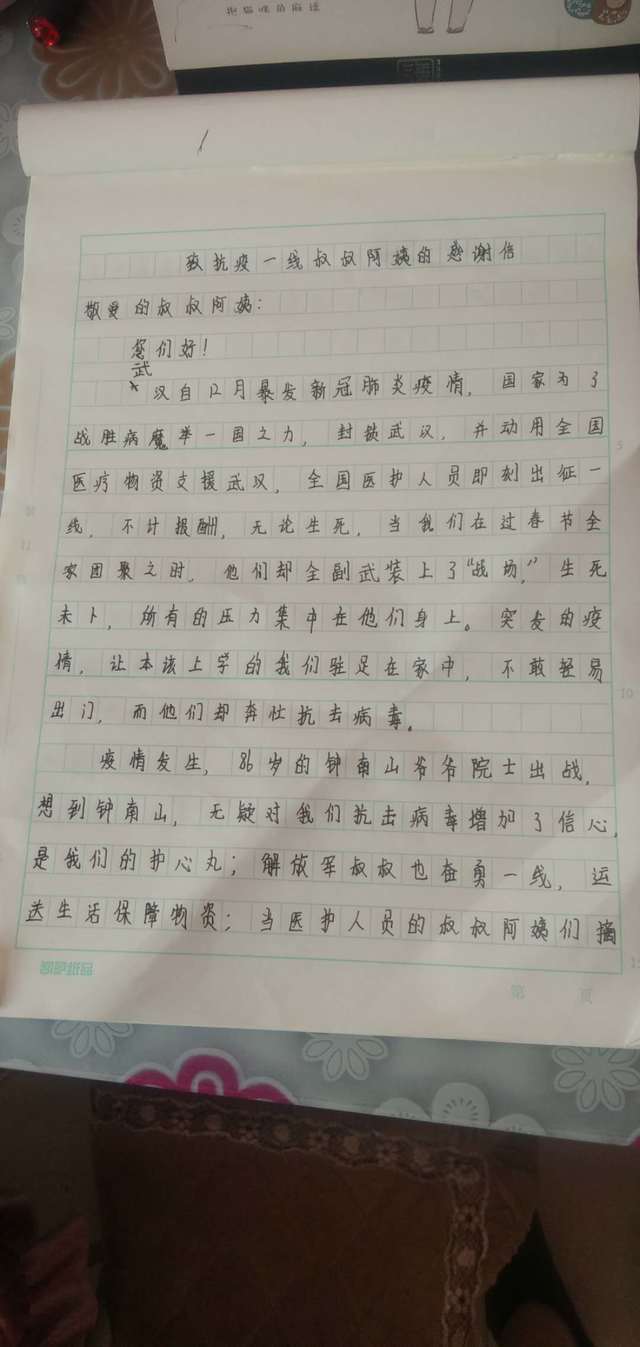 致抗疫一线叔叔阿姨的感谢信
敬爱的叔叔阿姨：
您们好！
武汉自12月暴发新冠肺炎疫情，国家为了
战胜病魔举一国之力，封锁武汉，并动用全国
医疗物资支援武汉，全国医护人员即刻出征一
线，不计报酬，无论生死，当我们在过春节全
家团聚之时，他们却全副武装上了“战场，”生死
未卜，所有的压力集中在他们身上。突发的疫
情，让本该上学的我们驻足在家中，不敢轻易
出门，而他们却奔赴抗击病毒。
疫情发生，86岁的钟南山爷爷院士出战，
想到钟南山，无疑对我们抗击病毒增加了信心，
是我们的护心丸；解放军叔叔也奋勇一线，运
送生活保障物资；当医护人员的叔叔阿姨们摘
第 页
5
10